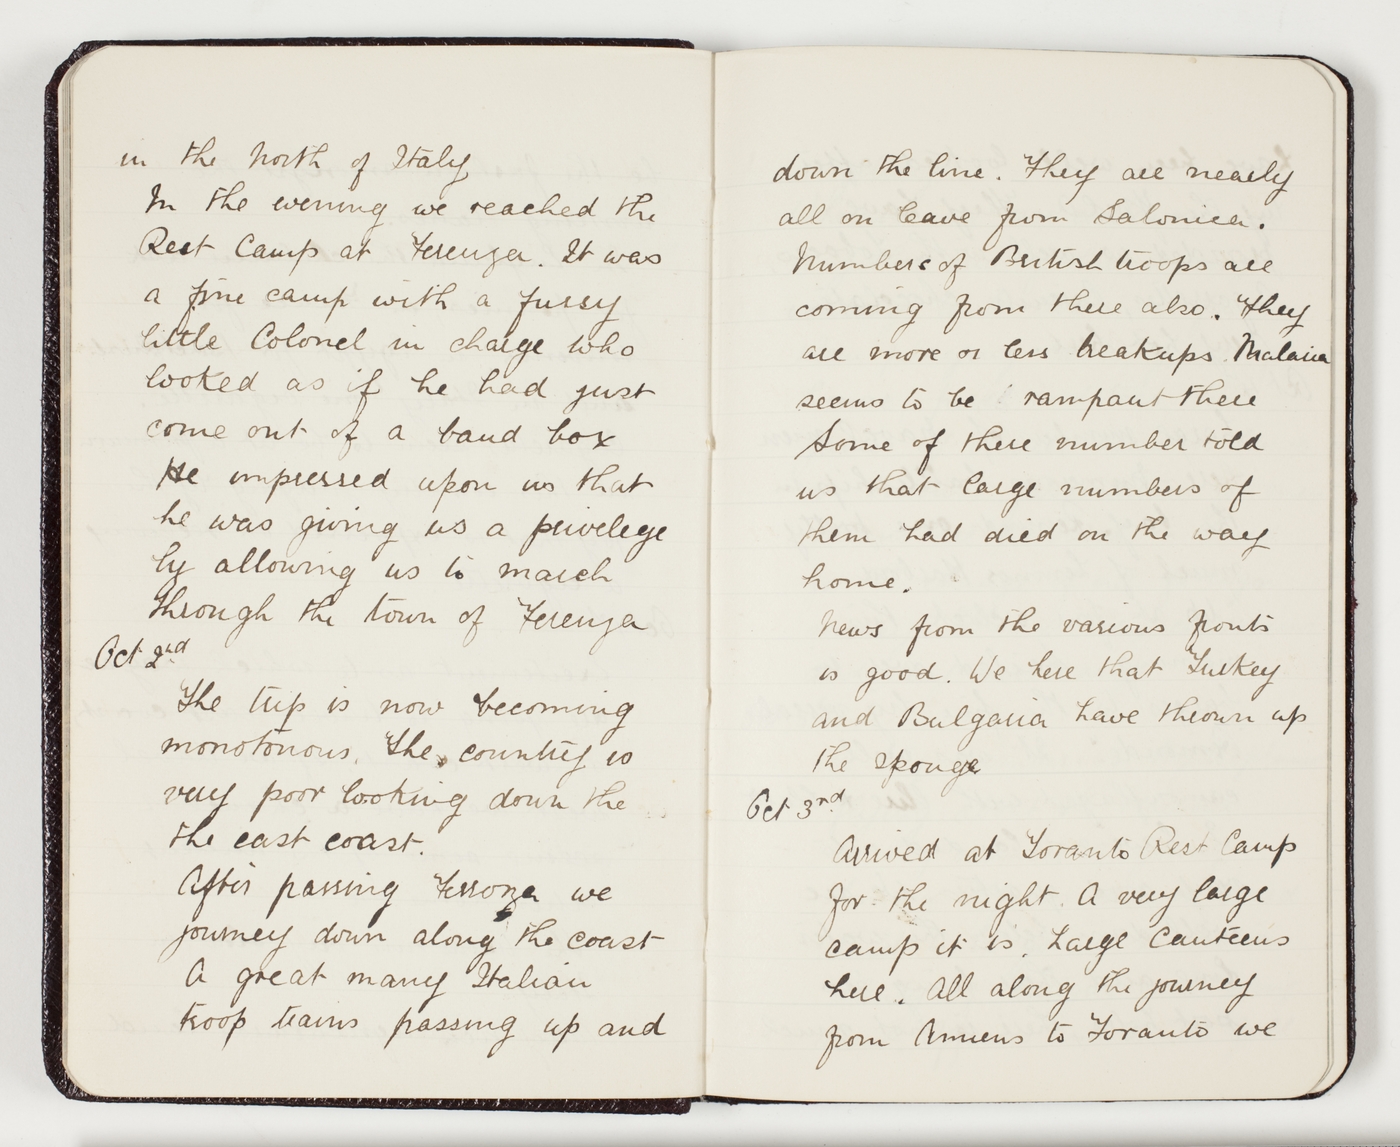 in the North of Italy
In the evening we reached the
Rest Camp at Ferenza. It was
a fine camp with a fussy
little Colonel in charge who
looked as if he had just
come out of a band box
He impressed upon us that
he was giving us a privelege
by allowing us to march
through the town of Ferenza
Oct 2nd
The trip is now becoming
monotonous. The country is
very poor looking down the
the east coast.
After passing we
journey down along the coast
A great many Italian
troop trains passing up and
down the line. They are nearly
all on leave from Salonica.
Numbers of British troops are
coming from there also. They
are more or less breakups. Malaria
seems to be rampant there
Some of there number told
us that large numbers of
them had died on the way
home.
News from the various fronts
is good. We here that Turkey
and Bulgaria have thrown up
the sponge
Oct 3rd
Arrived at Toranto Rest Camp
for the night. A very large
camp it is. Large Canteens
here. All along the journey
from Amiens to Toranto we